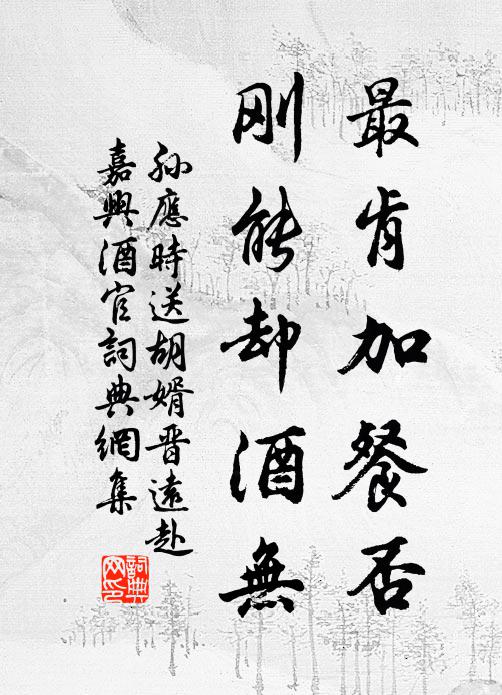 最肯加餐否
刚能却酒無
孙應時送胡婿晋遠赴
嘉興酒官詞典網集
詞典
网印